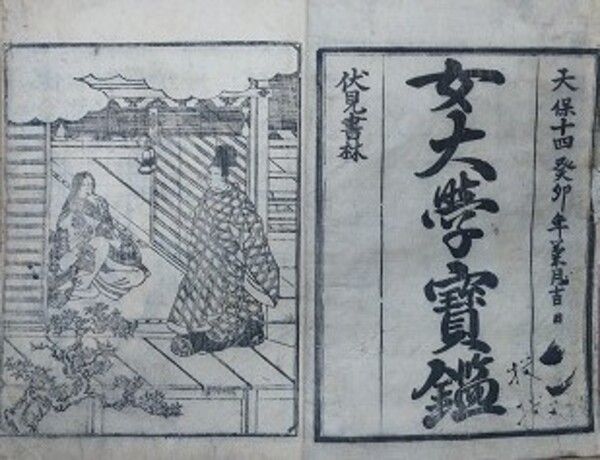 天保十四癸卯年菊月吉日
女大學寶鑑
伏見書林